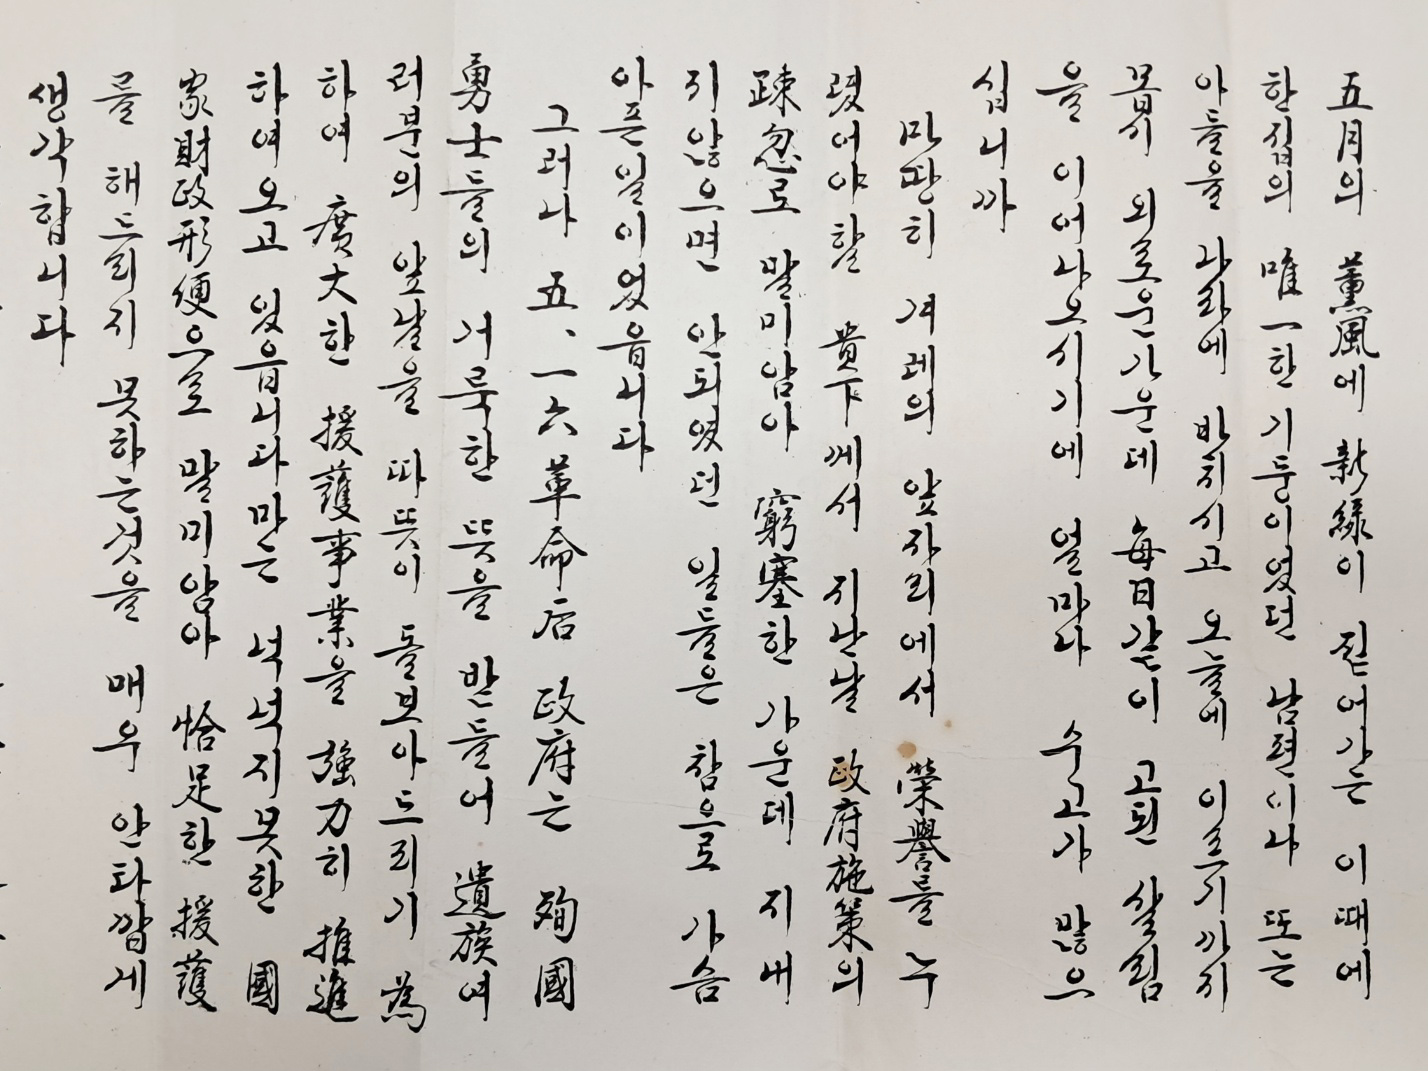 五月의 薰風에 新綠이 짙어가는 이때에
한집의 唯一한기둥이였던 남편이나 또는
아들을 나라에 바치시고 오늘에 이르기까지
몹시 외로운가운데 每日같이 고된 살림
을 이어나오시기에 얼마나 수고가 많으
십니까
마땅히 겨레의 앞자리에서 榮譽를 누
렸어야할 貴下께서 지난날 政府施策의
疎忽로 말미암아 窮塞한 가운데 지내
지않으면 안되였던 일들은 참으로 가슴
아픈일이었읍니다
그러나 五、一六革命后 政府는 殉國
勇士들의 거룩한 뜻을 받들어 遺族여
러분의 앞날을 따뜻이 돌보아드리기 爲
하여 廣大한 援護事業을 强力히 推進
하여오고 있읍니다마는 넉넉지못한 國
家財政形便으로 말미암아 恰足한 援護
를 해드리지 못하는것을 매우 안타깝게
생각합니다